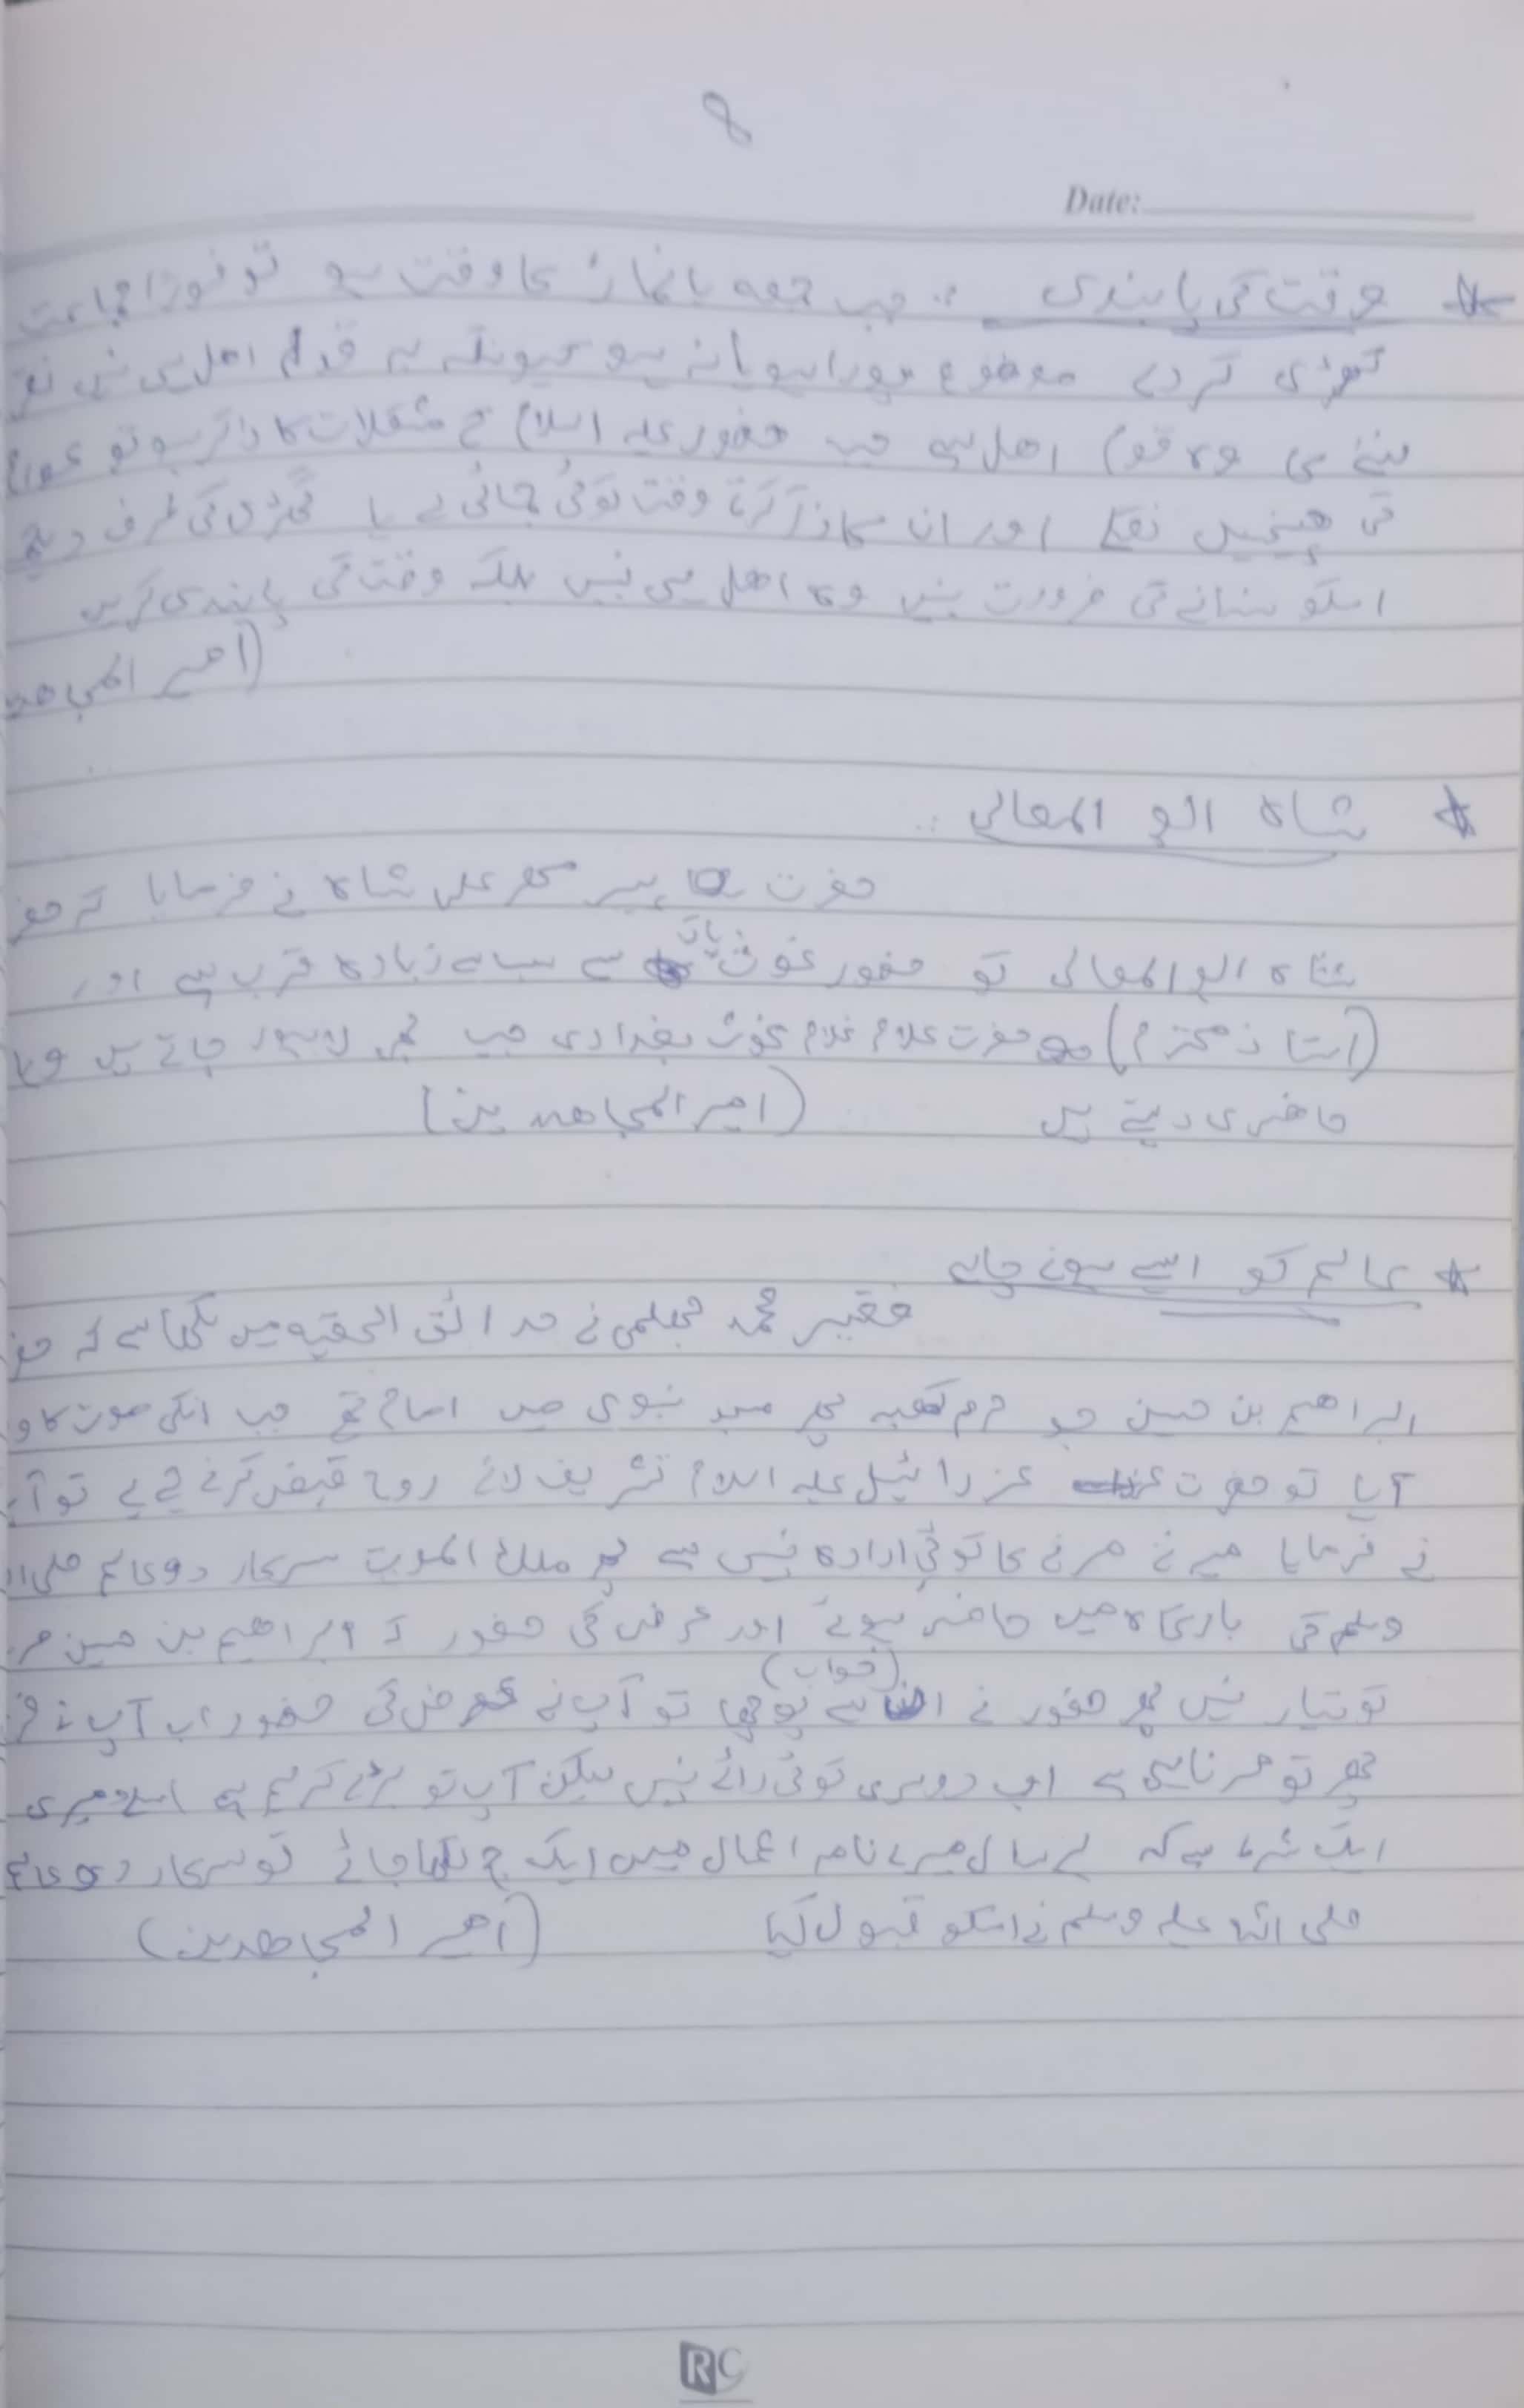 8
Date:
* وقت کی پابندی :. جب جمعہ یا نماز کا وقت ہو تو فورا جماعت
کھڑی کر دے موضوع پورا ہو یا نہ ہو کیونکہ یہ قوم اھل ہی نہیں
سننے کی وہ قوم اھل ہے جب حضور علیہ اسلام کے مشکلات کا ذکر ہو تو
کی چیخیں نکلے اور ان کا ذکر کرتے وقت کوئی جمائی لے یا گھڑی کی طرف دیکھے
اسکو سنانے کی ضرورت نہیں وہ اھل ہی نہیں بلکہ وقت کی پابندی کریں
(امیر المجاھد
* شاہ ابو المعالی :.
حضرت پیر مھر علی شاہ نے فرمایا کہ
شاہ ابو المعالی کو حضور غوث پاک سے سب سے زیادہ قرب ہے اور
(استاذ محترم) حضرت علامہ غلام غوث بغدادی جب بھی لاہور جاتے ہیں
حاضری دیتے ہیں (امیر المجاھدین)
* عالم کو ایسے ہونے چاہے
فقیر محمد جھلمی نے حدائق الحقیہ میں لکھا ہے کہ
ابراھیم بن حسین جو حرم کعبہ پھر مسجد نبوی میں امام تھے جب انکی موت کا و
آیا تو حضرت عزرائیل علیہ اسلام تشریف لائے روح قبض کرنے کے لیے تو آپ
نے فرمایا میرے مرنے کا کوئی ارادہ نہیں ہے پھر ملک الموت سرکار دو عالم صلی
وسلم کی بارگاہ میں حاضر ہوئے اور عرض کی حضور کہ ابراھیم بن حسین
تو تیار نہیں پھر حضور نے ان سے (خواب) پوچھا تو آپ نے عرض کی حضور اب آپ نے
پھر تو مرنا ہی ہے اب دوسری کوئی رائے نہیں لیکن آپ تو بڑے کریم ہے اسلئے میری
ایک شرط ہے کہ ہر سال میرے نامہ اعمال میں ایک حج لکھا جائے تو سرکار دو عالم
صلی اللہ علیہ وسلم نے اسکو قبول کیا (امیر المجاھدین)
RC